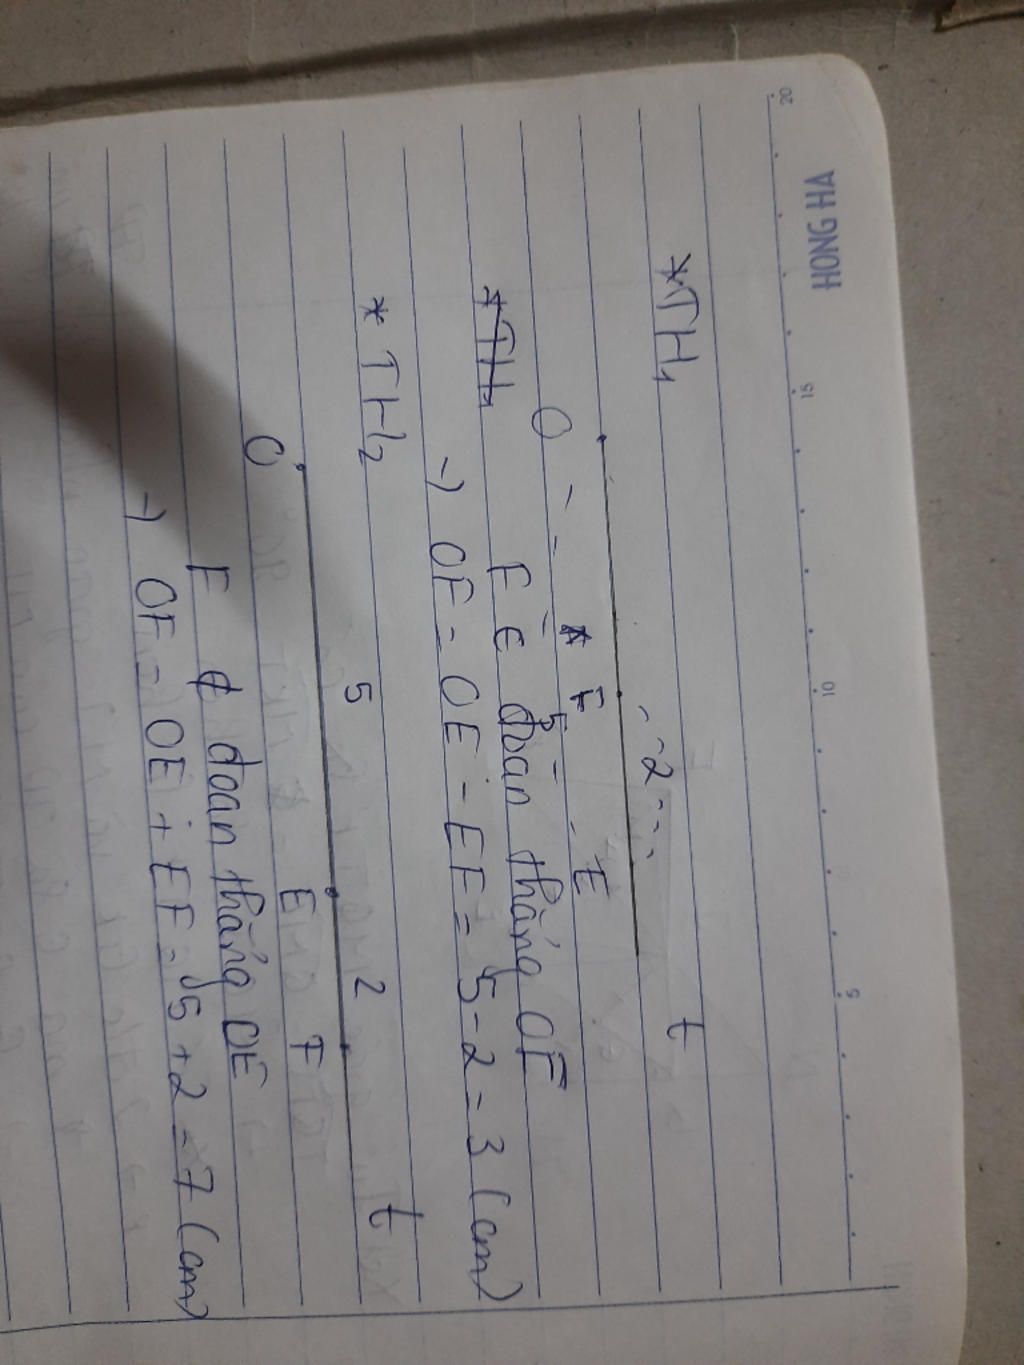 HONG HA
20 15 10 5
*TH1
t
2
F E
O 5
*TH1 F ∈ đoạn thẳng OF
→) OF = OE - EF = 5 - 2 = 3 (cm)
*TH2
t
5 2
O E F
F ∉ đoạn thẳng OE
→) OF = OE + EF = 5 + 2 = 7 (cm)